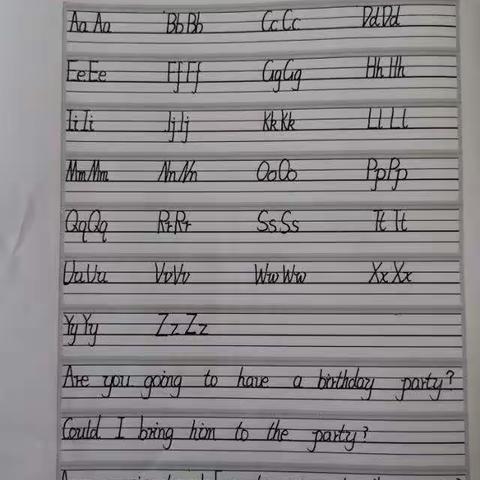 Aa Aa Bb Bb Cc Cc Dd Dd
Ee Ee Ff Ff Gg Gg Hh Hh
Ii Ii Jj Jj Kk Kk Ll Ll
Mm Mm Nn Nn Oo Oo Pp Pp
Qq Qq Rr Rr Ss Ss Tt Tt
Uu Uu Vv Vv Ww Ww Xx Xx
Yy Yy Zz Zz
Are you going to have a birthday party?
Could I bring him to the party?